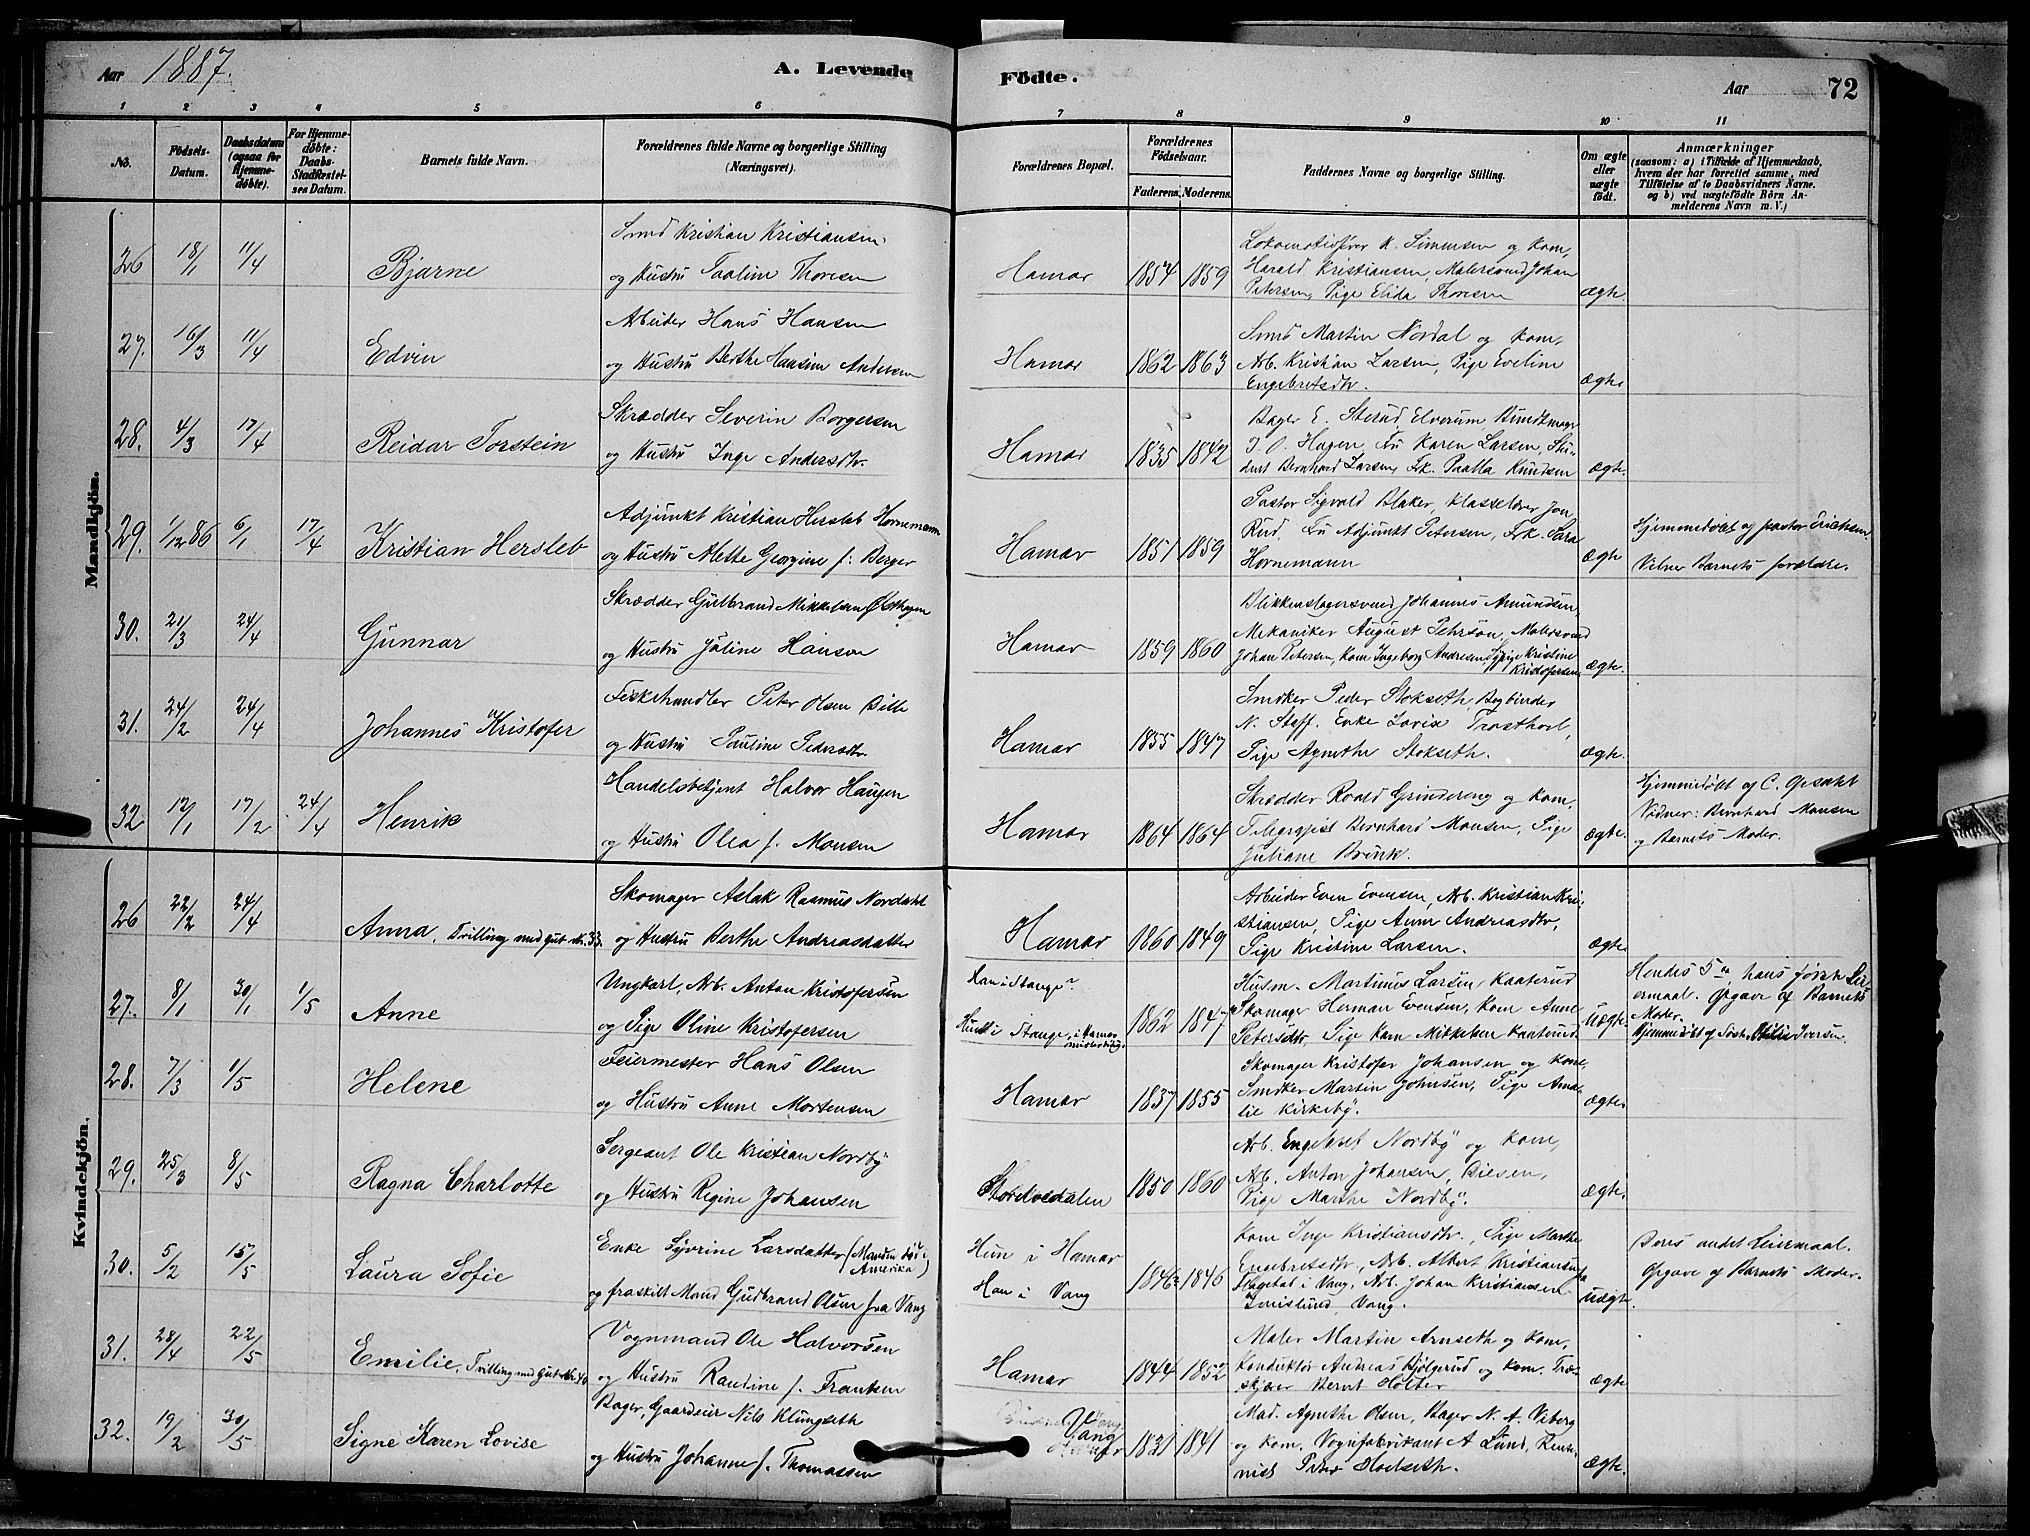 Aar 1887.
A. Levende Födte.
Aar 72
1 2 3 4 5 6 7 8 9 10 11
No.
Födsels-Datum.
Daabsdatum (ogsaa for Hjemmedöbte).
For Hjemmedöbte: Daabs-Stadfæstelses Datum.
Barnets fulde Navn.
Forældrenes fulde Navne og borgerlige Stilling (Næringsvei).
Forældrenes Bopæl.
Forældrenes Födselsaar.
Faderens. Moderens.
Faddernes Navne og borgerlige Stilling.
Om ægte eller uægte födt.
Anmærkninger (saasom: a) i Tilfælde af Hjemmedaab, hvem der har forrettet samme, med Tilföielse af to Daabsvidners Navne, og b) ved uægtefödte Börn Anmelderens Navn m. V.)
Mandkjön.
26 18/1 11/4 Bjarne
Smed Kristian Kristiansen
og Hustru Paaline Thoresen
Hamar 1854 1859
Lokomotivfører K. Simensen og Kone,
Harald Kristiansen, Malersvend Johan
Petersen, Pige Elida Thoresen
ægte.
27. 16/3 11/4 Edvin
Arbeider Hans Hansen
og Hustru Berthe Hansine Andersen
Hamar 1862 1863
Smed Martin Nordal og Kone,
Arb. Kristian Larsen, Pige Eveline
Engebretsdtr.
ægte
28. 4/3 17/4 Reidar Torstein
Skrædder Severin Borgersen
og Hustru Inge Andersdtr.
Hamar 1835 1842
Bager E. Sterud, Elverum Bundtmager
J. O. Hagen Fru Karen Larsen, Stu-
dent Bernhard Larsen, Frk. Paalla Knudsen
ægte.
29. 1/12 86 6/1 17/4 Kristian Hersleb
Adjunkt Kristian Hersleb Hornemann
og Hustru Mette Georgine f. Berger
Hamar 1851 1859
Pastor Sigvald Blaker, Klasselærer Jon
Rud, Fru Adjunkt Petersen, Frk. Sara
Hornemann
ægte
Hjemmedøbt og pastor Erichsen.
Vidner Barnets forældre.
30. 21/3 24/4 Gunnar
Skrædder Gulbrand Mikkelsen Østhagen
og Hustru Joline Hansen
Hamar 1859 1860
Blikkenslagersvend Johannes Amundsen,
Mekaniker August Pehrson, Malersvend
Johan Petersen, Kone Ingeborg Andresen, Pige Kristine
Kristofersen
ægte.
31. 24/2 24/4 Johannes Kristofer
Fiskehandler Peter Olsen Bille
og Hustru Pauline Pedersdtr
Hamar 1855 1847
Snedker Peder Stokseth, Bogbinder
N. Steff. Enke Lovise Trosthoel,
Pige Agnethe Stokseth.
ægte.
32 12/1 17/2 24/4 Henrik
Handelsbetjent Halvor Haugen
og Hustru Olea f. Monsen
Hamar 1864 1864
Skrædder Roald Grindereng og Kone,
Telegrafist Bernhard Monsen, Pige
Juliane Brink.
ægte.
Hjemmedøbt af C. Opsahl
Vidner: Bernhard Monsen
og Barnets Moder.
Kvindekjön.
26 22/2 24/4 Anna, Tvilling med Gut No. 33.
Skomager Aslak Rasmus Nordahl
og Hustru Berthe Andreasdatter
Hamar 1860 1849
Arbeider Even Evensen, Arb. Kristian Kri-
stiansen, Pige Anne Andreasdtr,
Pige Kristine Larsen.
ægte
27. 8/1 30/1 1/5 Anne
Ungkarl, Arb. Anton Kristofersen
og Pige Oline Kristofersen
Han i Stange
Hun i Stange, i Hamar
1862 1847
Husm. Martinus Larsen, Kaaterud
Skomager Herman Evensen, Kone Anne
Petersdtr, Pige Karn Mikkelsen Kaaterud
uægte.
Hendes 5te hans første Lei-
ermaal. Opgave af Barnets
Moder.
Hjemmedøbt af Jordm. Iversen.
28. 7/3 1/5 Helene
Feiermester Hans Olsen
og Hustru Anne Mortensen
Hamar 1837 1855
Skomager Kristofer Johansen og Kone,
Snedker Martin Johnsen, Pige Ama-
lie Kirkeby.
ægte
29. 25/3 8/5 Ragna Charlotte
Sergeant Ole Kristian Nordby
og Hustru Regine Johansen
Storelvedalen 1850 1860
Arb. Engebret Nordby og Kone,
Arb. Anton Johansen, Biesen,
Pige Marthe Nordby.
ægte.
30. 5/2 15/5 Laura Sofie
Enke Syvrine Larsdatter (Manden død i Amerika)
og fraskilt Mand Gudbrand Olsen fra Vang
Hun i Hamar
Han i Vang
1846 1846
Kone Inge Kristiansdtr, Pige Marthe
Engebretsdtr, Arb. Albert Kristiansen fra
Flagstad i Vang, Arb. Johan Kristiansen
Vang.
uægte
Deres andet Leiermaal.
Opgave af Barnets Moder.
31. 28/4 22/5 Emilie, Tvilling med Gut No. 40
Vognmand Ole Halvorsen
og Hustru Randine f. Frantsen
Hamar 1844 1852
Maler Martin Arnseth og Kone,
Konduktør Andreas Bjølgerud og Kone, Træ-
skjærer Bernt Holter
ægte
32. 19/2 30/5 Signe Karen Lovise
Bager, Gaardeier Nils Klungseth
og Hustru Johanne f. Thomassen
Vang
1831 1841
Mad. Agnethe Olsen, Bager N. A. Viberg
og Kone, Vognfabrikant A. Lund, Rent-
nist Peter Hoelseth.
ægte.